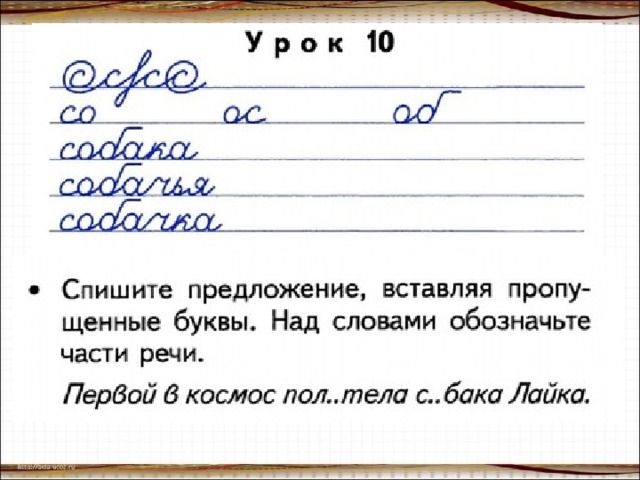 Урок 10
со ос об
собака
собачья
собачка
• Спишите предложение, вставляя пропу-
щенные буквы. Над словами обозначьте
части речи.
Первой в космос пол..тела с..бака Лайка.